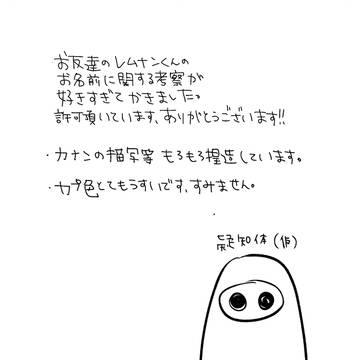 お友達のレムナンくんの
お名前に関する考察が
好きすぎてかきました。
許可頂いています、ありがとうございます!!
・カナンの描写等 もろもろ捏造しています。
・カプ色とてもうすいです、すみません。
疑知体(仮)